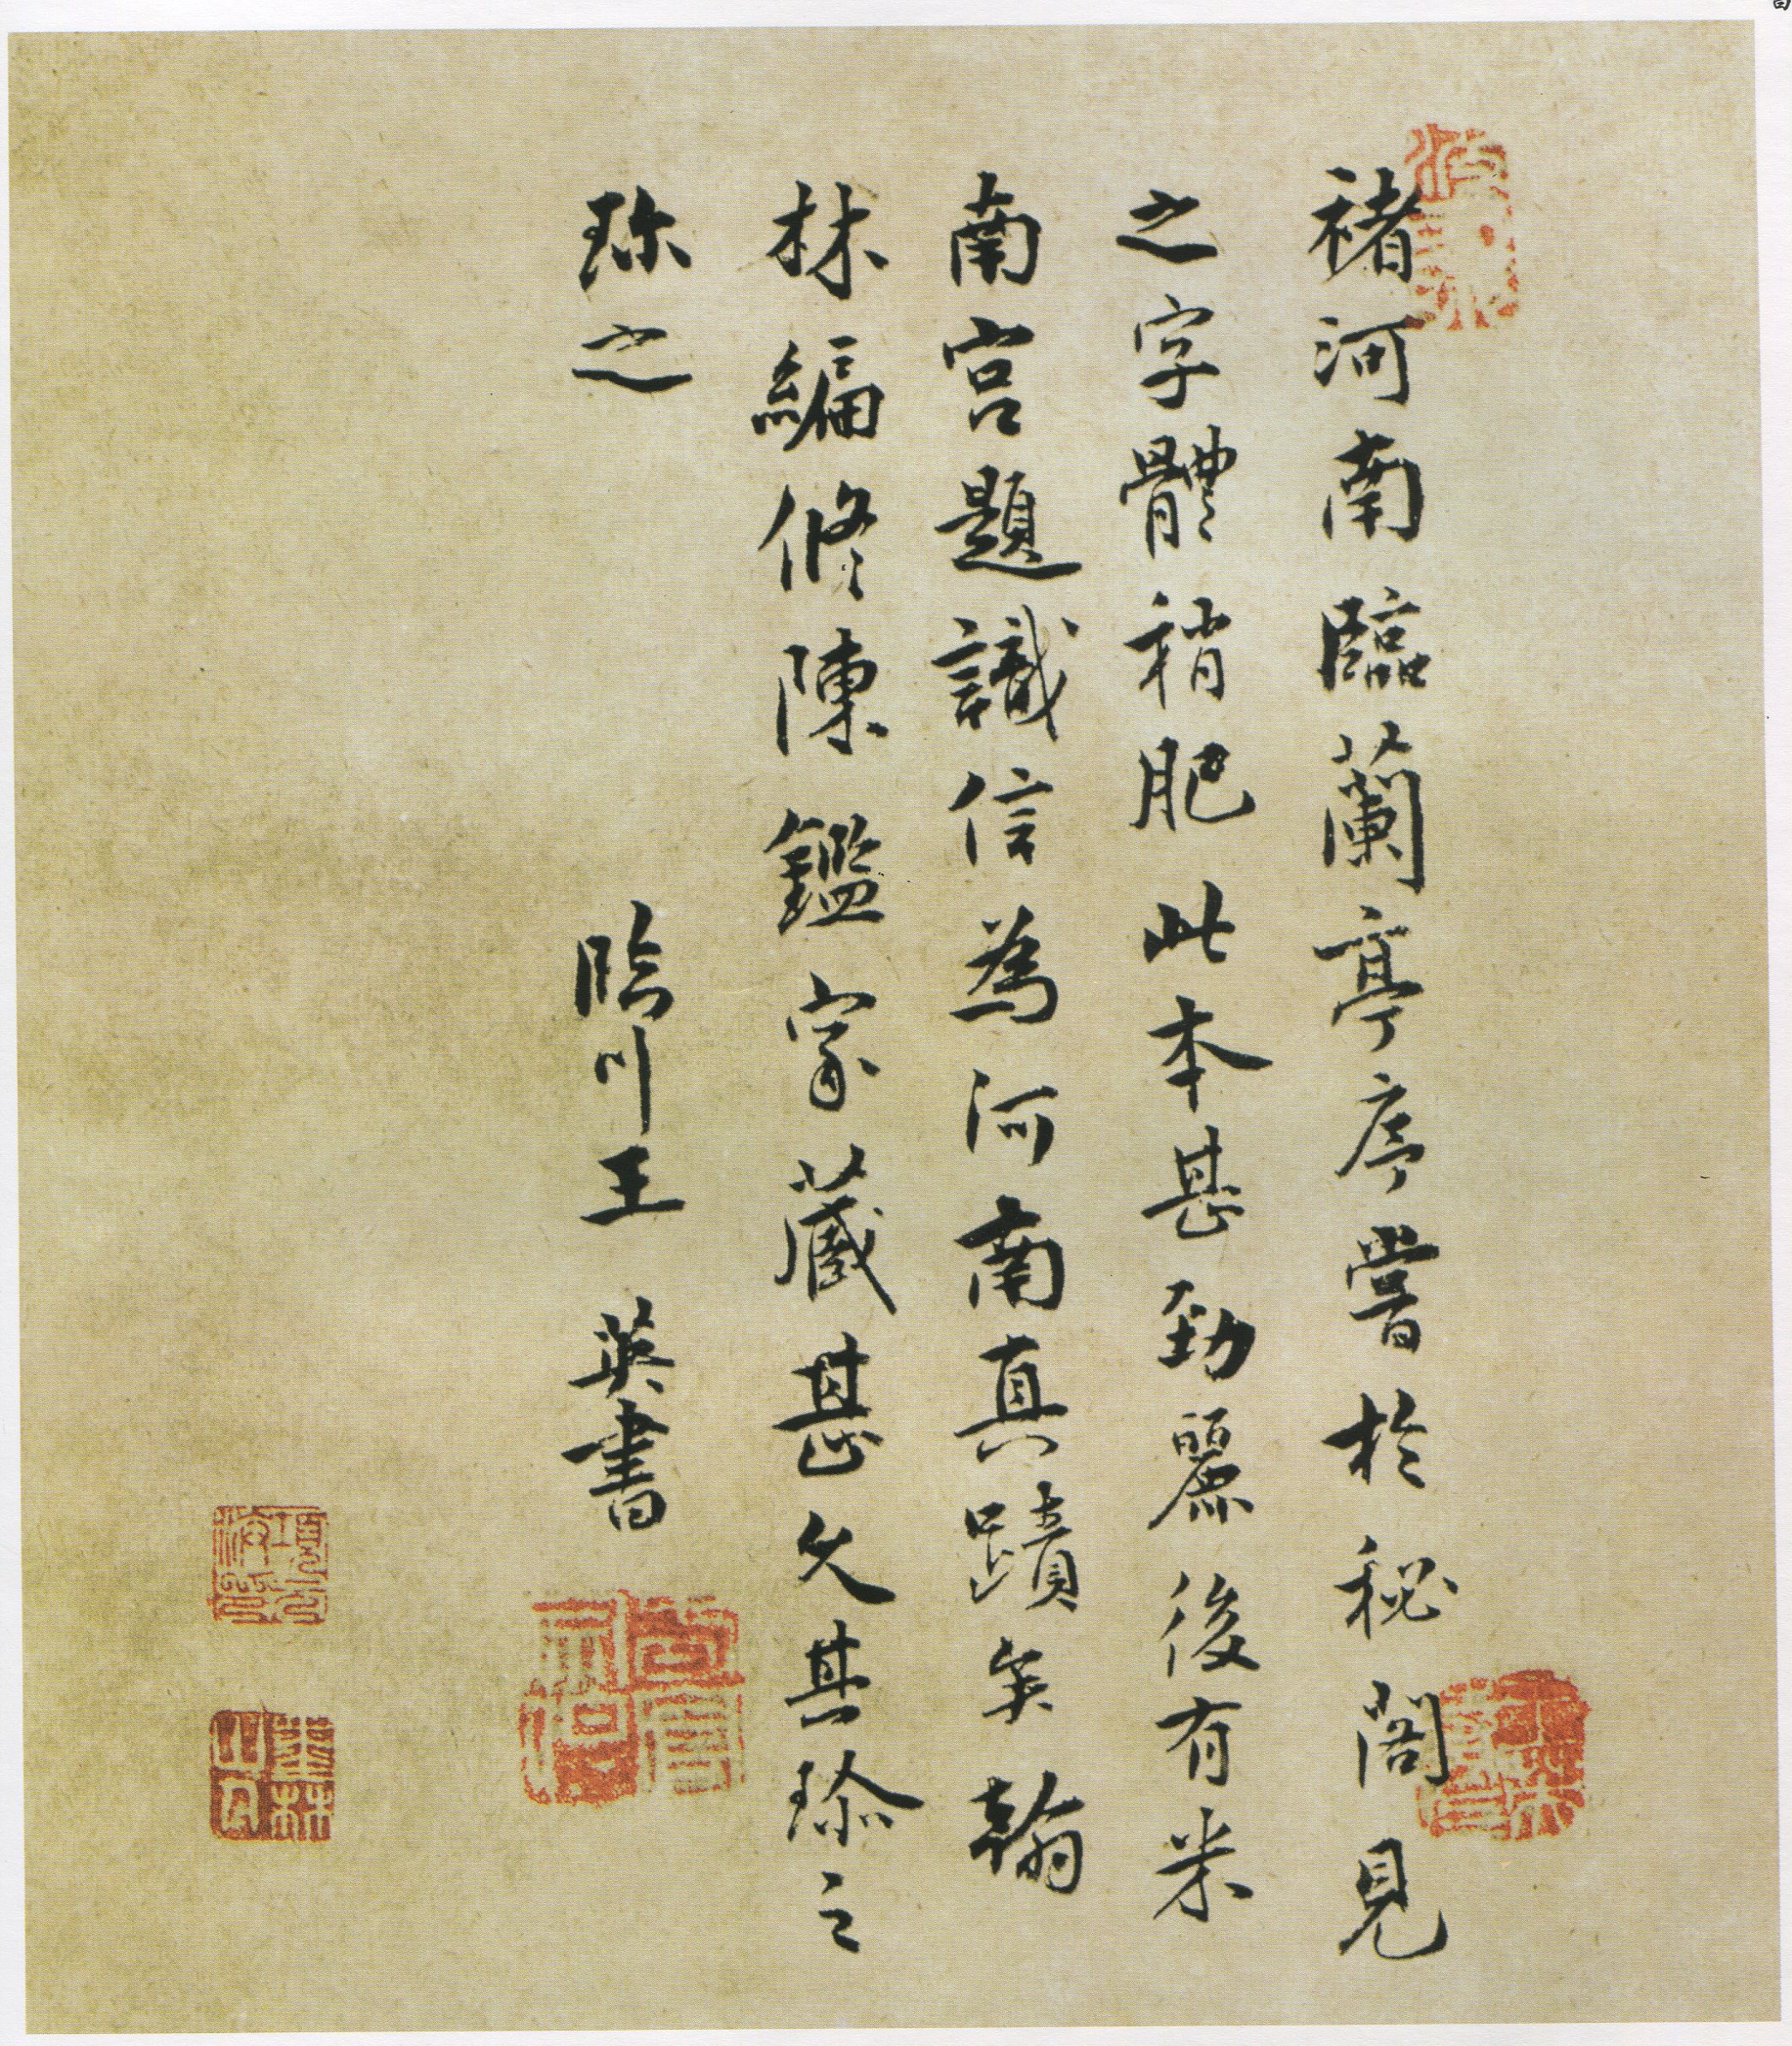 褚河南臨蘭亭序嘗於秘閣見
之字體稍肥此本甚勁麗後有米
南宮題識信為河南真蹟矣翰
林編修陳鑑家藏甚久其珎之
珎之
臨川王英書